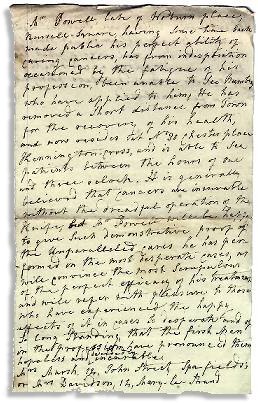 Mr Powell late of Hoburn place,
Russell Square having some time back
made public his perfect ability of
curing cancers, has from indisposition
occasioned by the fatigues of his
profession, been unable to see numbers
who have applied to him; He has
removed a short distance from Town
for the recovery of his health,
and now resides at No 90 chester place
Kennington cross, and is able to see
patients between the hours of one
and three oclock. It is generally
believed that cancers are incurable
without the dreadful operation of the
Knife, but Mr Powell will be happy
to give such demonstrative proof of
the Unparalleled cures he has per
formed in the most desperate cases, as
will convince the most Scrupulous
of the perfect efficacy of his treatment
and will refer with pleasure to those
who have experienced the happy
effects of it in cases so desperate and of
so long standing that the first Men
in the profession have pronounced them
hopeless and incurable
Mrs Marsh 29, John Street Spafields
or Mrs Davidson, 12, Mary-le Strand